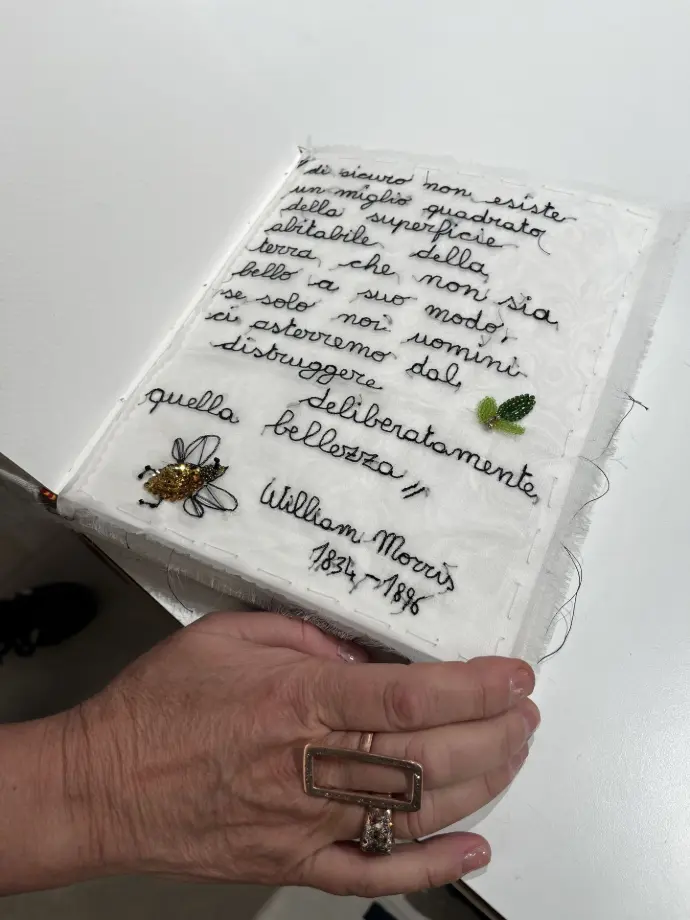 "di sicuro non esiste
un miglio quadrato
della superficie
abitabile della
terra che non sia
bello a suo modo,
se solo noi uomini
ci asterremo dal
distruggere
deliberatamente
quella bellezza"
William Morris
1834-1896